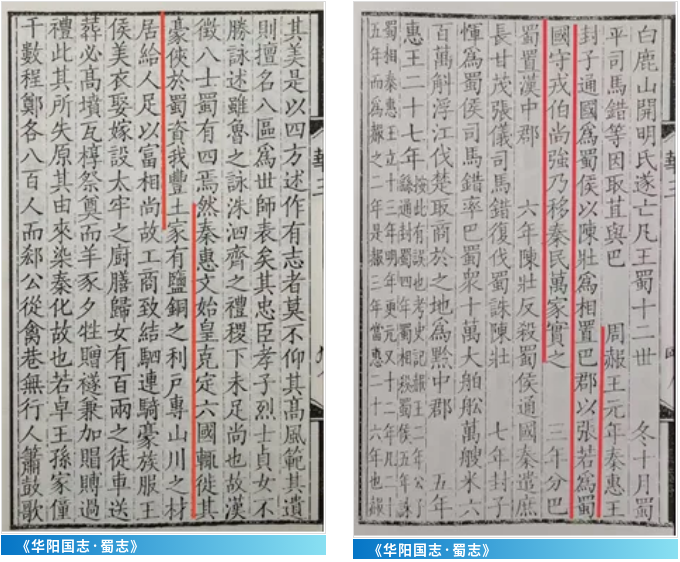 其美是以四方述作有志者莫不仰其髙風範其遺
則擅名八區爲世師表矣其忠臣孝子烈士貞女不
勝詠述雖魯之詠洙泗齊之禮稷下未足尚也故漢
徵八士蜀有四焉然秦惠文始皇克定六國輒徙其
豪俠於蜀資我豐土家有鹽銅之利戶專山川之材
居給人足以富相尚故工商致結駟連騎豪族服王
侯美衣娶嫁設太牢之廚膳歸女有百兩之徒車送
葬必髙墳瓦槨祭奠而羊豕夕牲贈襚兼加賵賻過
禮此其所失原其由來染秦化故也若卓王孫家僮
千數程鄭各八百人而郄公從禽巷無行人簫鼓歌
《华阳国志·蜀志》
白鹿山開明氏遂亡凡王蜀十二世 冬十月蜀
平司馬錯等因取苴與巴 周赧王元年秦惠王
封子通國爲蜀侯以陳壯爲相置巴郡以張若爲蜀
國守戎伯尚強乃移秦民萬家實之 三年分巴
蜀置漢中郡 六年陳壯反殺蜀侯通國秦遣庶
長甘茂張儀司馬錯復伐蜀誅陳壯 七年封子
惲爲蜀侯司馬錯率巴蜀衆十萬大舶舩萬艘米六
百萬斛浮江伐楚取商於之地爲黔中郡 五年
惠王二十七年
按此有誤也考史記赧王二年公子
繇通封蜀四年蜀相殺蜀侯五年誅
蜀相秦惠王立十三年明年更元又十二年凡二十
五年而爲赧之二年是赧三年當惠二十六年也赧
《华阳国志·蜀志》